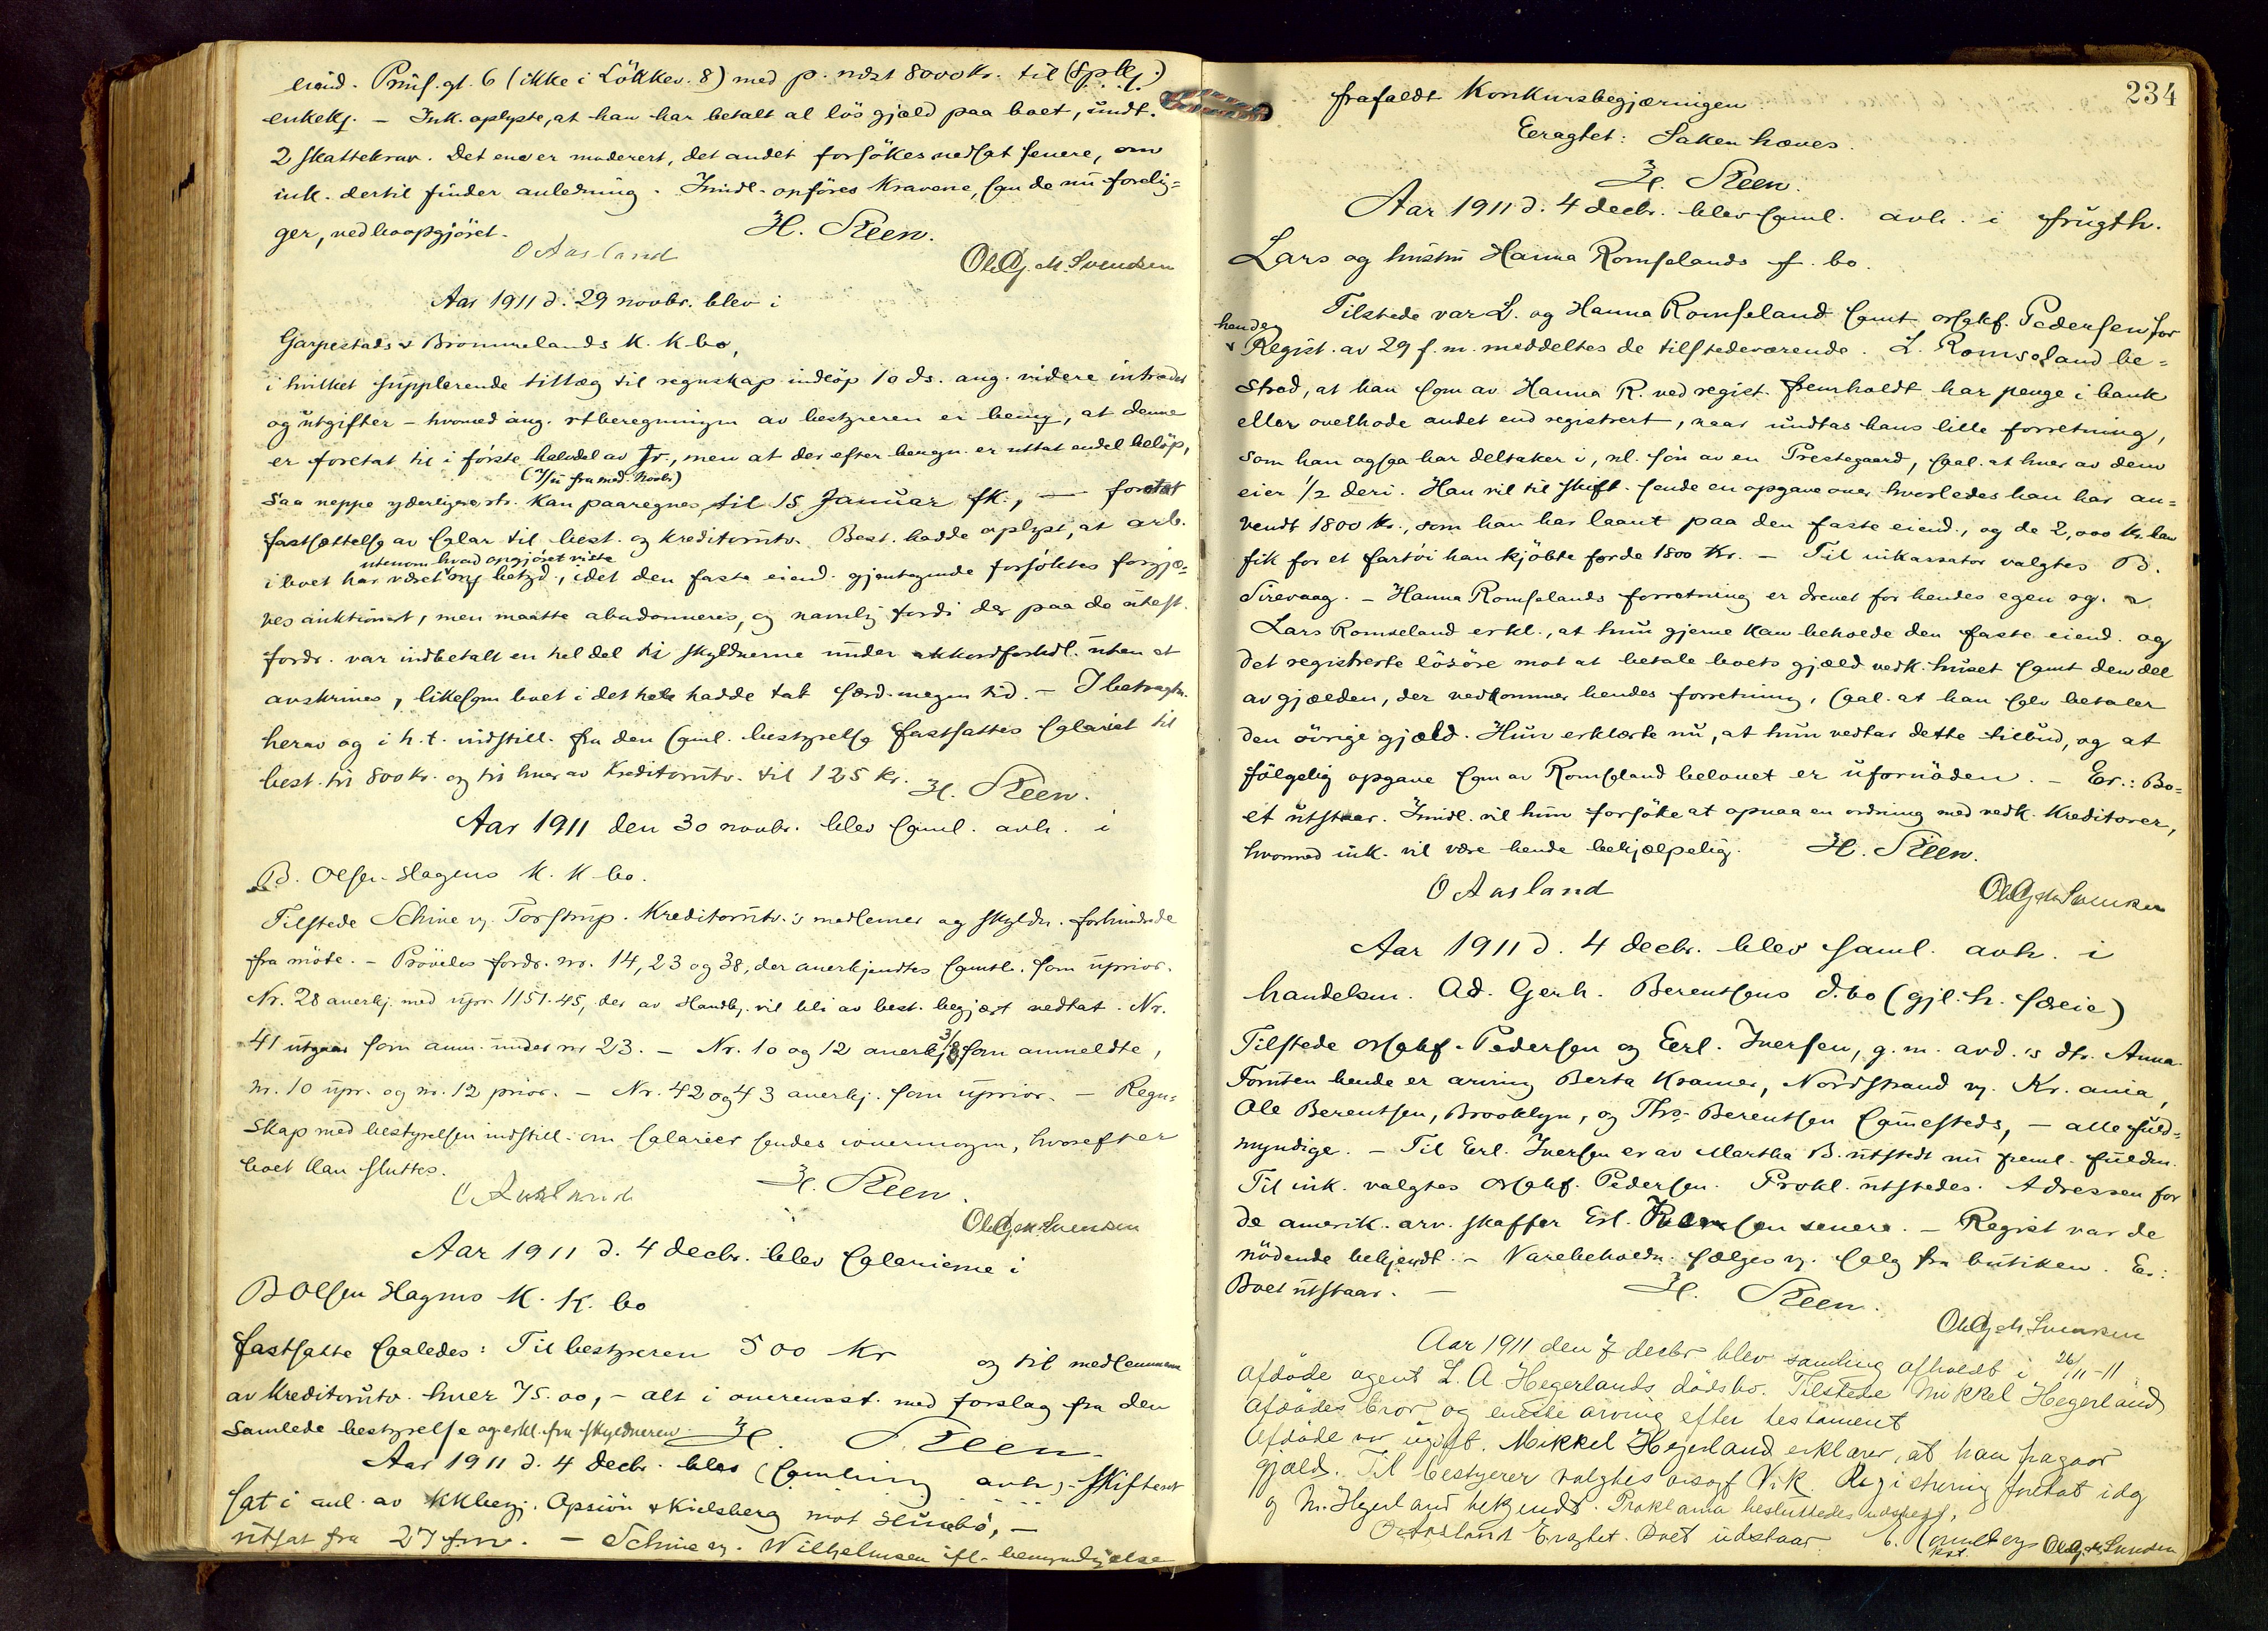 eiend. Prins.gt. 6 (ikke i Lökkev. 8) med p. næst 8000 Kr. til
enkekj. — Ink. oplyste, at han har betalt al lös gjæld paa boet, undt.
2 skattekrav. Det ene er moderert, det andet forsökes nedsat senere, om
ink. dertil finder anledning. Imidl. opföres kravene, som de nu forelig=
ger, ved boopgjöret.
H. Steen.
O Aasland
Ole Gj. M. Svendsen
Aar 1911 d. 29 novbr. blev i
Garpestads & Brommelands K. K bo,
i hvilket supplerende tillæg til regnskap indlöp 10 ds. ang. videre intrader
og utgifter – hvorved ang. rtberegningen av bestyreren er bemg, at denne
er foretat til i förste halvdel av Jr., men at der efter beregn. er uttat endel belöp,
saa neppe yderligere rtr. kan paaregnes til 15 Januar fk., — foretat
fastsættelse av salær til best. og kreditorutv. Best. hadde oplyst, at arb.
utenom hvad opgjöret viste
i boet har været betyd., idet den faste eiend. gjentagende forsöktes forgjæ=
ves auktionert, men maatte abandonneres, og navnlig fordi der paa de utest.
fordr. var indbetalt en hel del til skyldnerne under akkordforhdl. uten at
avskrives, likesom boet i det hele hadde tat særd. megen tid. — I betragtn.
herav og i h. t. indstill. fra den saml. bestyrelse fastsattes salæriet til
best. til 800 kr. og til hver av kreditorutv. til 125 kr.
H. Steen.
Aar 1911 den 30 novbr. blev saml. avh. i
B. Olsen Hagens K. K bo.
Tilstede Schiue og Torstrup. Kreditorutv.'s medlemer og skyldn. forhindrede
fra möte. — Prövedes fordr. nr. 14, 23 og 38, der anerkjendtes samtl. som uprior.
Nr. 28 anerkj. med upr. 1151.45, der av Handb. vil bli av best. begjært vedtat. Nr.
41 utgaar som anm. under nr 23. — Nr. 10 og 12 anerkj. som anmeldte,
nr. 10 upr. og nr. 12 prior. — Nr. 42 og 43 anerkj. som uprior. — Regn=
skap med bestyrelsen indstill. om salærier sendes iovermorgen, hvorefter
boet kan sluttes.
H. Steen.
O Aasland
Ole Gj. M. Svendsen
Aar 1911 d. 4 decbr. blev salærierne i
B Olsen Hagens K. K. bo
fastsatte saaledes: Til bestyreren 500 kr og til medlemmerne
av kreditorutv. hver 75.00, – alt i overensst. med forslag fra den
samlede bestyrelse og erkl. fra skyldneren.
H. Steen
Aar 1911 d. 4 decbr. blev samling avh. i skifteret
sat i anl. av KKbegj. Opsiön & Kielsberg mot —
utsat fra 27 f.m. — Schiue og Wilhelmsen ifl. bemyndigelse
234
frafaldt Konkursbegjæringen.
Eeragtet: Saken hæves.
H. Steen.
Aar 1911 d. 4 decbr. blev saml. avh. i frugth.
Lars og hustru Hanna Romselands f. bo.
Tilstede var L. og Hanna Romseland samt orsakf. Pedersen for
hende.
Regist. av 29 f. m. meddeltes de tilstedeværende. L. Romseland be=
stred, at han som av Hanna R. ved regist. fremholdt har penge i bank
eller overhode andet end registrert, naar undtas hans lille forretning,
som han ogsaa har deltaker i, nl. sön av en Prestegaard, saal. at hver av dem
eier 1/2 deri. Han vil til skift. sende en opgave over hvorledes han har an=
vendt 1800 kr., som han har laant paa den faste eiend., og de 2,000 kr. han
fik for et fartöi han kjöbte for de 1800 Kr. — Til inkassator valgtes B.
Sirevaag. — Hanna Romselands forretning er drevet for hendes egen rg.
Lars Romseland erkl., at hun gjerne kan beholde den faste eiend. og
det registrerte lösöre mot at betale boets gjæld vedk. huset samt den del
av gjælden, der vedkommer hendes forretning, saal. at han selv betaler
den övrige gjæld. Hun erklærte nu, at hun vedtar dette tilbud, og at
fölgelig opgave som av Romseland belovet er ufornöden. — Er.: Bo=
et utstaar. Imidl. vil hun forsöke at opnaa en ordning med vedk. kreditorer,
hvormed ink. vil være hende behjælpelig.
H. Steen.
O Aasland
Ole Gj. M. Svendsen
Aar 1911 d. 4 decbr. blev saml. avh. i
handelsm. Ad. Gerh. Berentsens d. bo (gjl. h. særeie)
Tilstede orsakf. Pedersen og Erl. Iversen, g. m. avd.'s dtr. Anna.
Foruten hende er arving Berta Kramer, Nordstrand og Kr.ania,
Ole Berentsen, Brooklyn, og Ths. Berentsen sammesteds, — alle fuld=
myndige. — Til Erl. Iversen er av Martha B. utstedt nu freml. fuldm.
Til ink. valgtes orsakf. Pedersen. Prokl. utstedes. Adressen for
de amerik. arv. skaffer Erl. Iversen senere. — Regist var de
mödende bekjendt. — Varebeholdn. sælges v. salg fra butiken. Er:
Boet utstaar. —
H. Steen.
Ole Gj. M. Svendsen
Aar 1911 den 7 decbr blev samling afholdt i 26/11-11
afdöde agent L. A Hegerlands dödsbo. Tilstede Mikkel Hegerland
afdödes bror og eneste arving efter testament
Afdöde var ugift. Mikkel Hegerland erklærer, at han fragaar
gjæld. Til bestyrer valgtes orsagf Vik. Registrering foretat idag
og M. Hegerland bekjendt. Proklama besluttedes udstedt.
O Aasland Eragtet. Boet udstaar. kst. Ole Gj. M. Svendsen